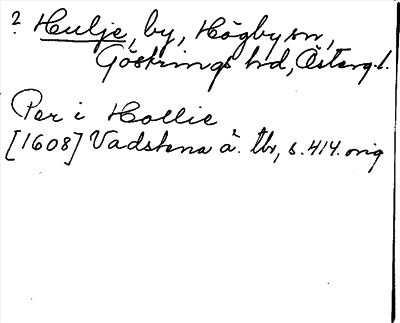 ? Hulje, by, Högby sn,
Göstrings hd, Österg.l.
Per i Hollie
[1608] Vadstena ä. tbr, s. 414. orig